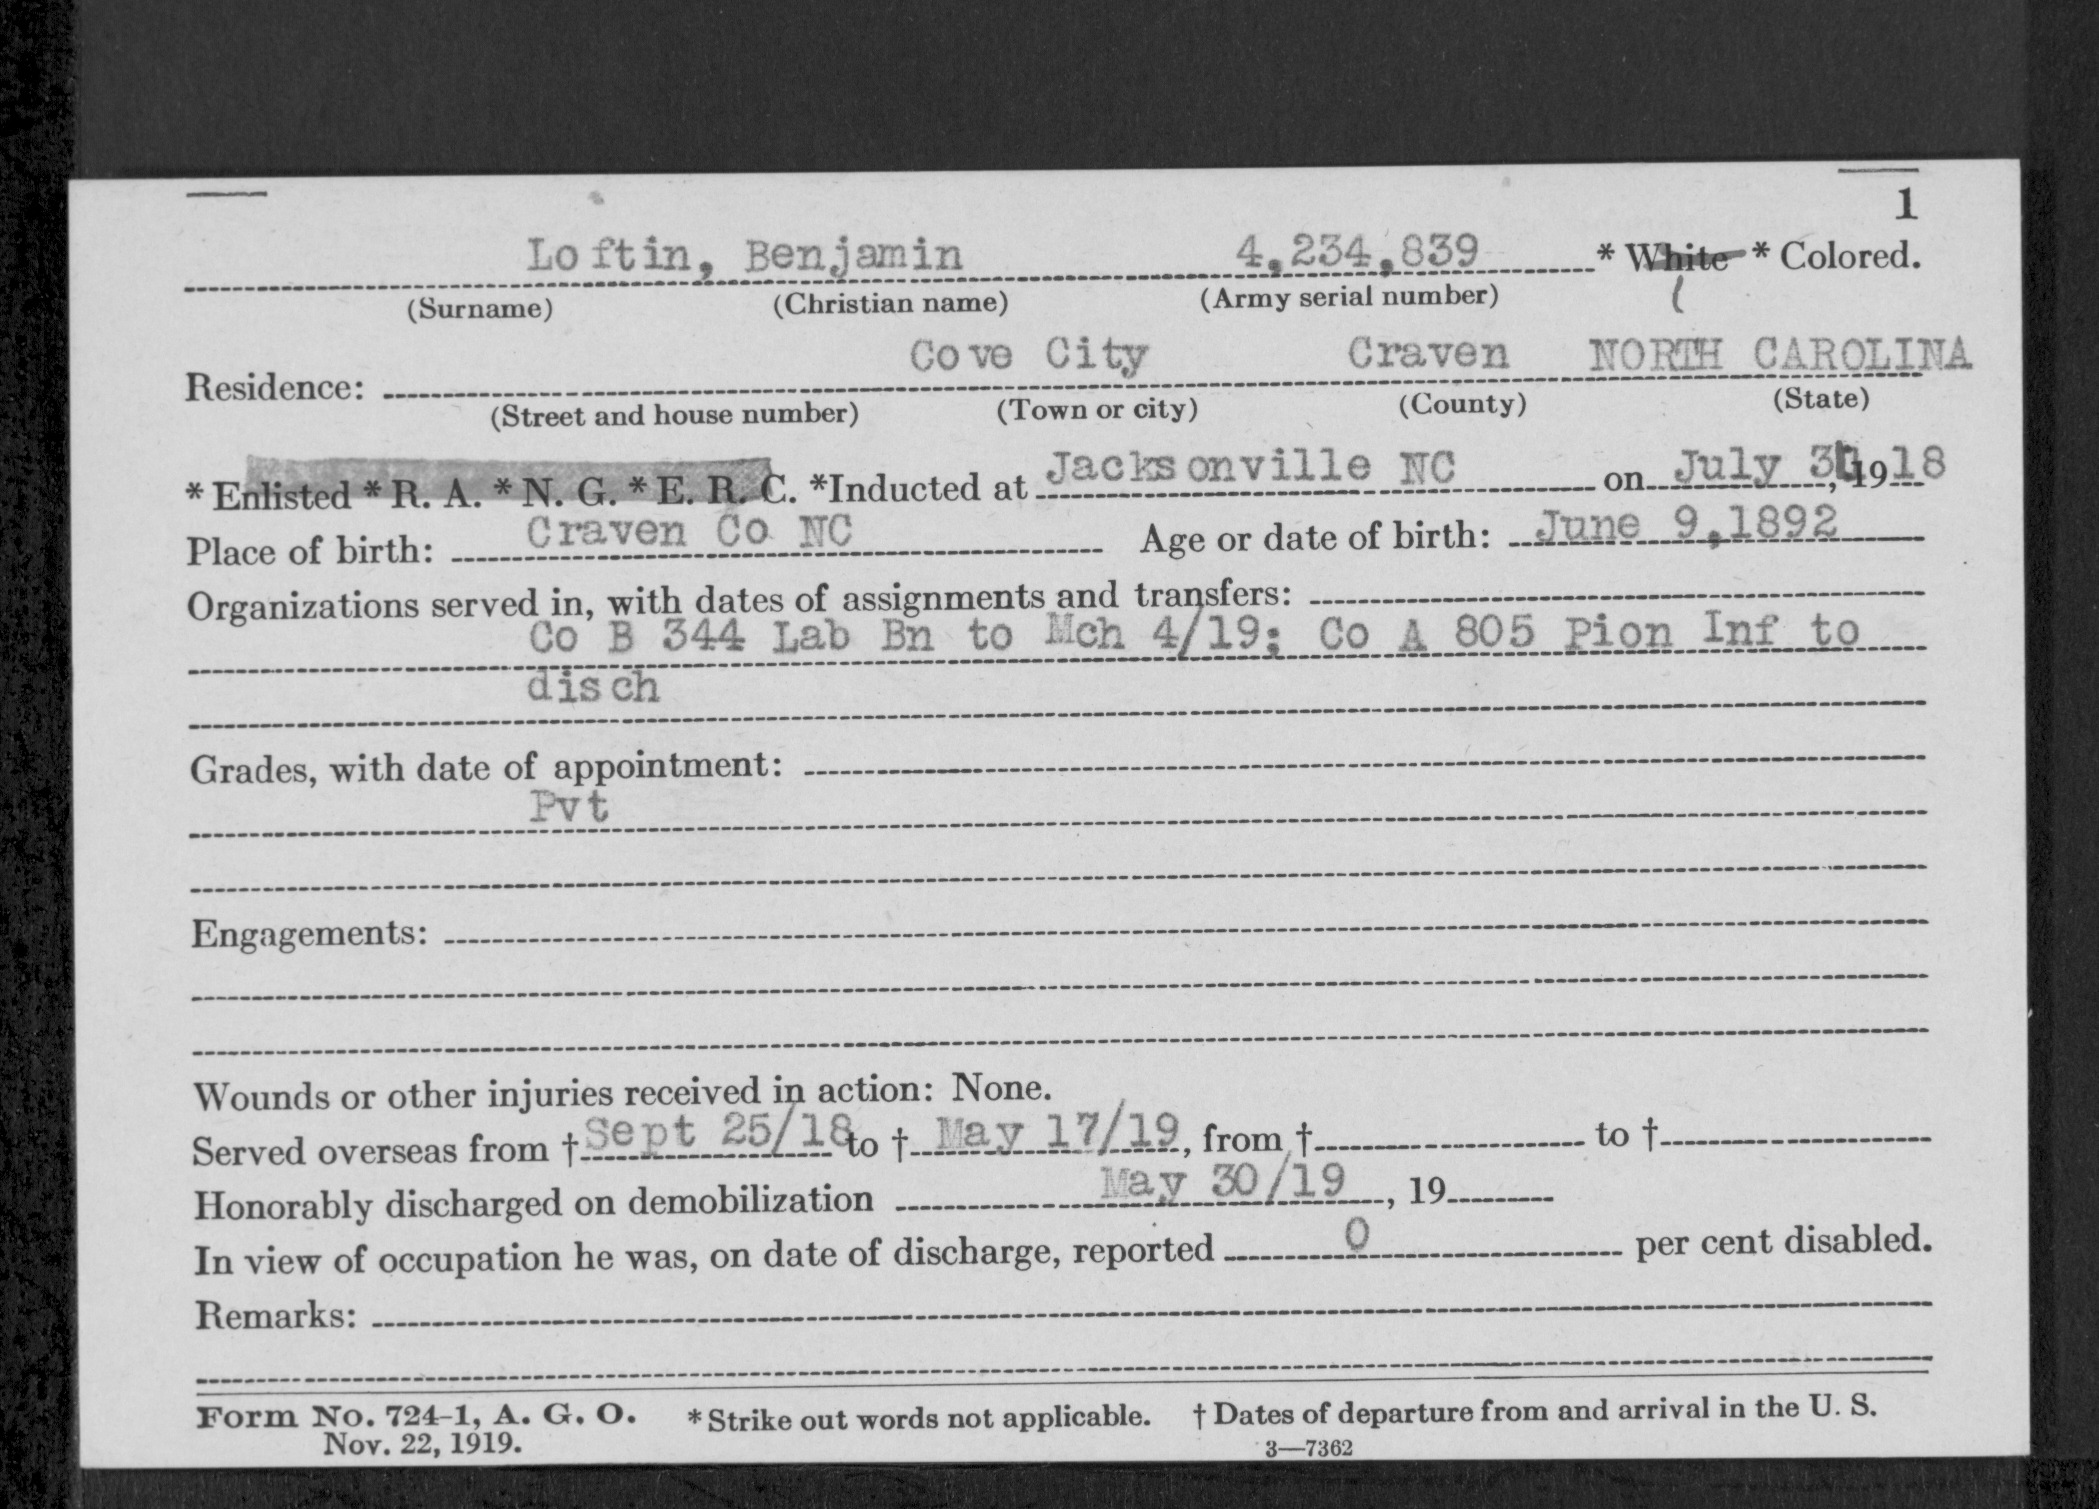 1
Loftin, Benjamin 4,234,839 * White * Colored.
(Surname) (Christian name) (Army serial number)
Residence: Cove City Craven NORTH CAROLINA
(Street and house number) (Town or city) (County) (State)
* Enlisted * R. A. * N. G. * E. R. C. *Inducted at Jacksonville NC on July , 1918
Place of birth: Craven Co NC Age or date of birth: June 9,1892
Organizations served in, with dates of assignments and transfers:
Co B 344 Lab Bn to Mch 4/19; Co A 805 Pion Inf to
disch
Grades, with date of appointment:
Pvt
Engagements:
Wounds or other injuries received in action: None.
Served overseas from † Sept 25/18 to † May 17/19, from † to †
Honorably discharged on demobilization May 30/19, 19
In view of occupation he was, on date of discharge, reported 0 per cent disabled.
Remarks:
Form No. 724-1, A. G. O. * Strike out words not applicable. † Dates of departure from and arrival in the U. S.
Nov. 22, 1919. 3—7362